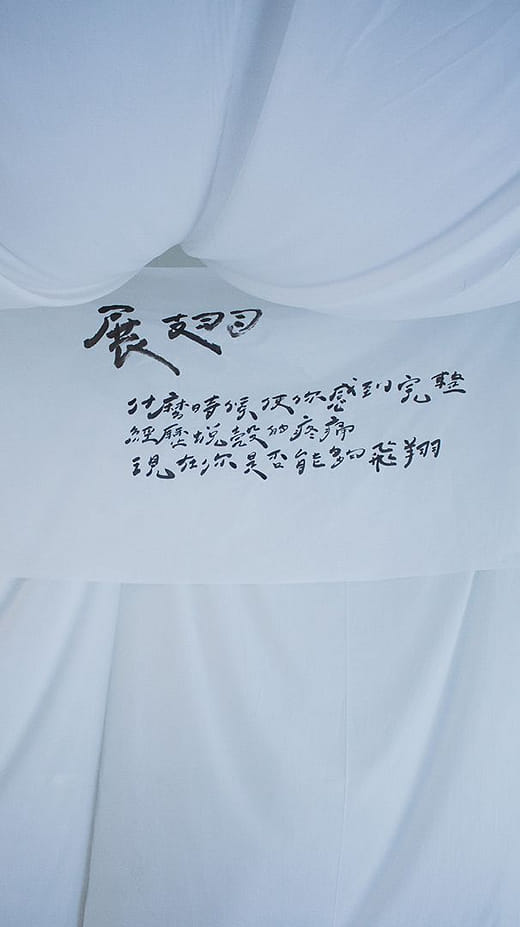 展翅
什麼時候使你感到完整
經歷蛻殼的疼痛
現在你是否能夠飛翔